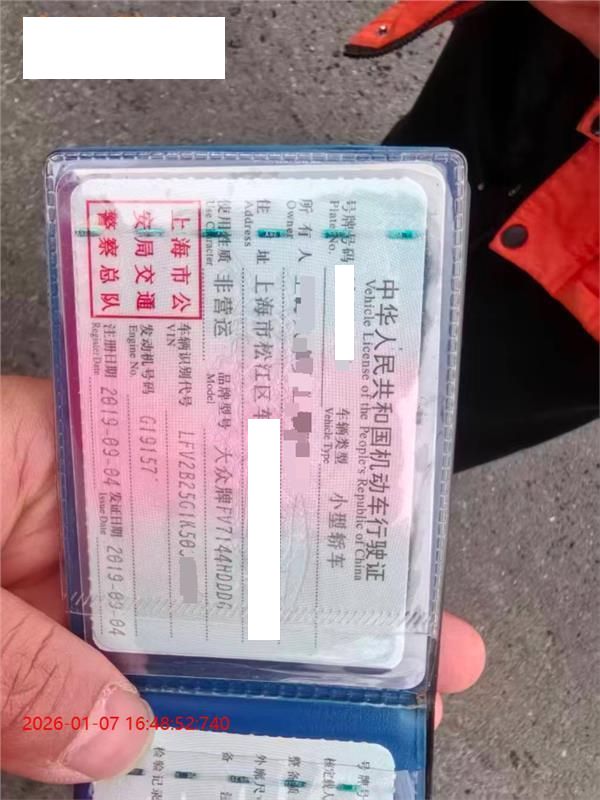 中华人民共和国机动车行驶证
Vehicle License of the People's Republic of China
号牌号码
Plate No.
车辆类型 小型轿车
Vehicle Type
所有人
Owner
住址 上海市松江区车
Address
使用性质 非营运
Use Character
品牌型号 大众牌FV7144HDDDG
Model
上海市公
安局交通
警察总队
车辆识别代号 LFV2B25G1K50
VIN
发动机号码 G19157
Engine No.
注册日期 2019-09-04
Register Date
发证日期 2019-09-04
Issue Date
号牌号
核定载人
整备质
外廓尺寸
备注
检验记录
2026-01-07 16:48:52:740